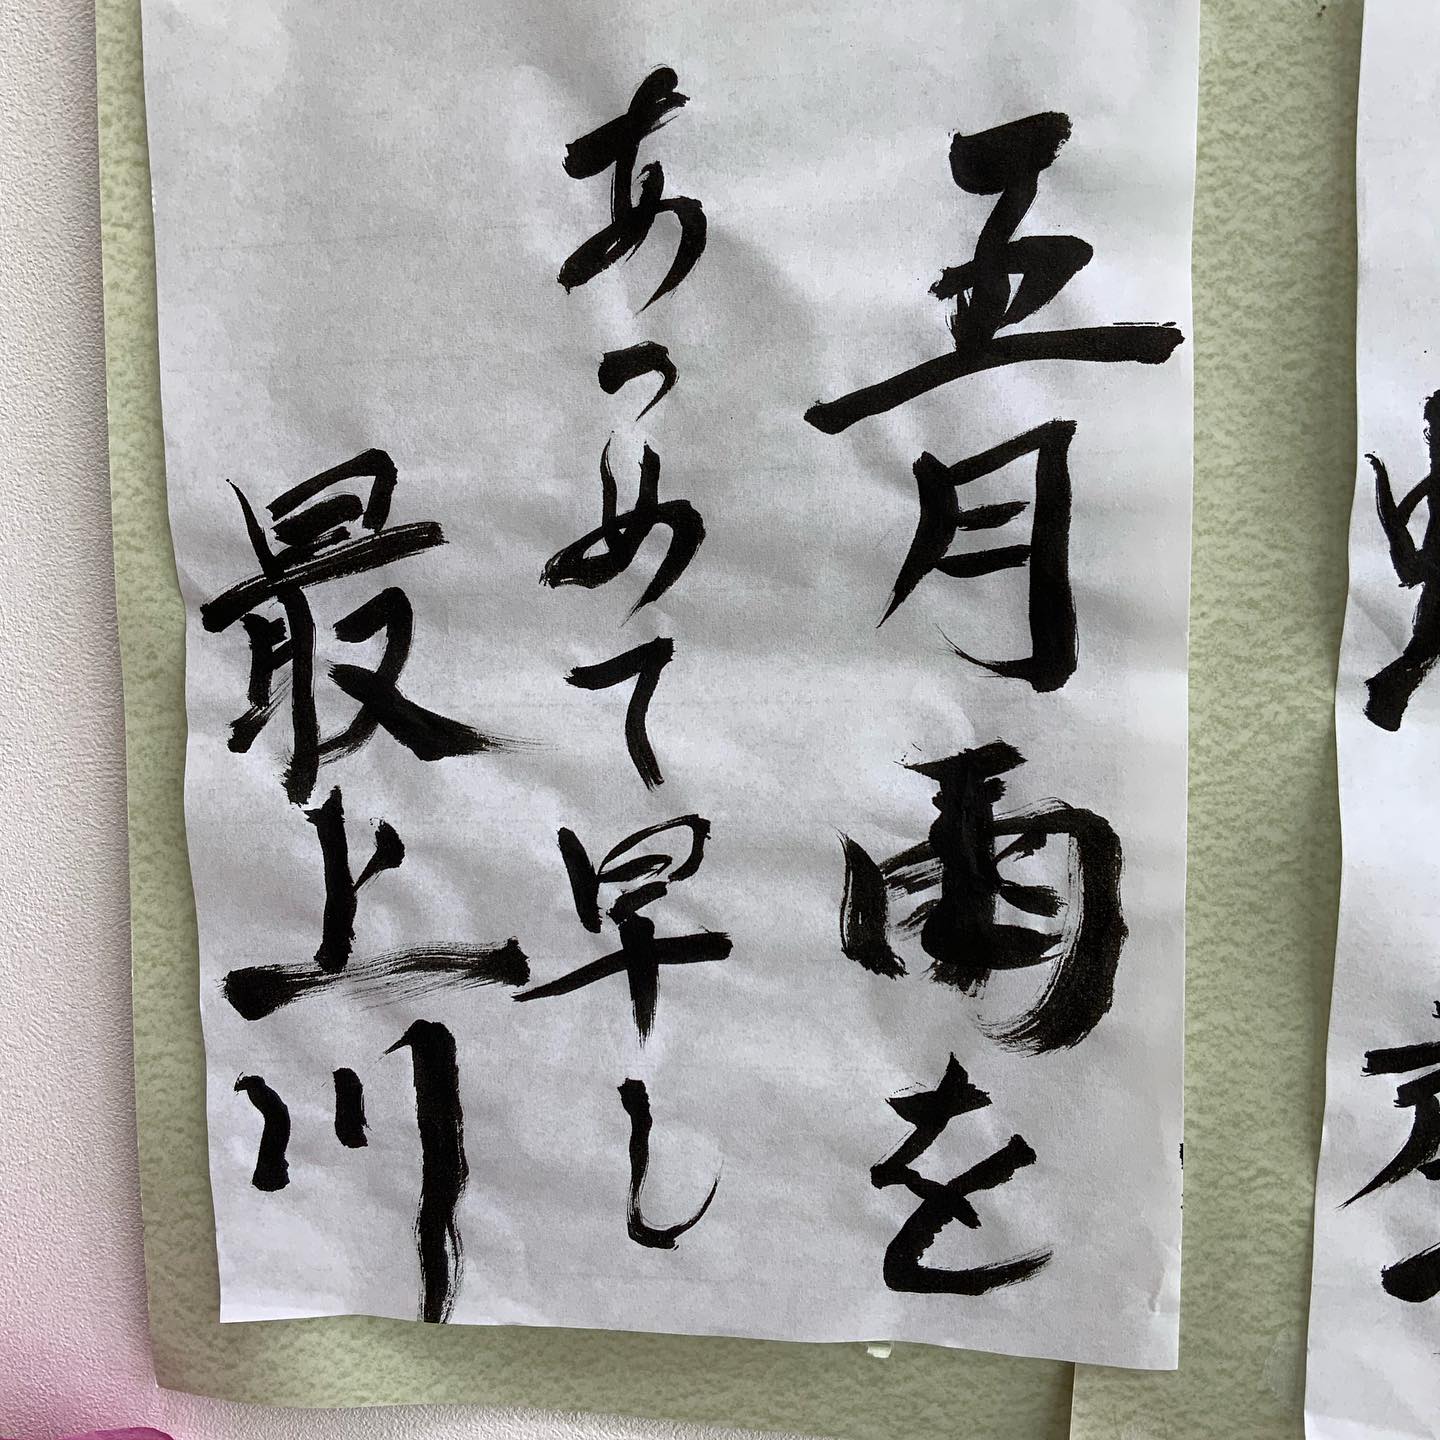 五月雨を
あつめて早し
最上川